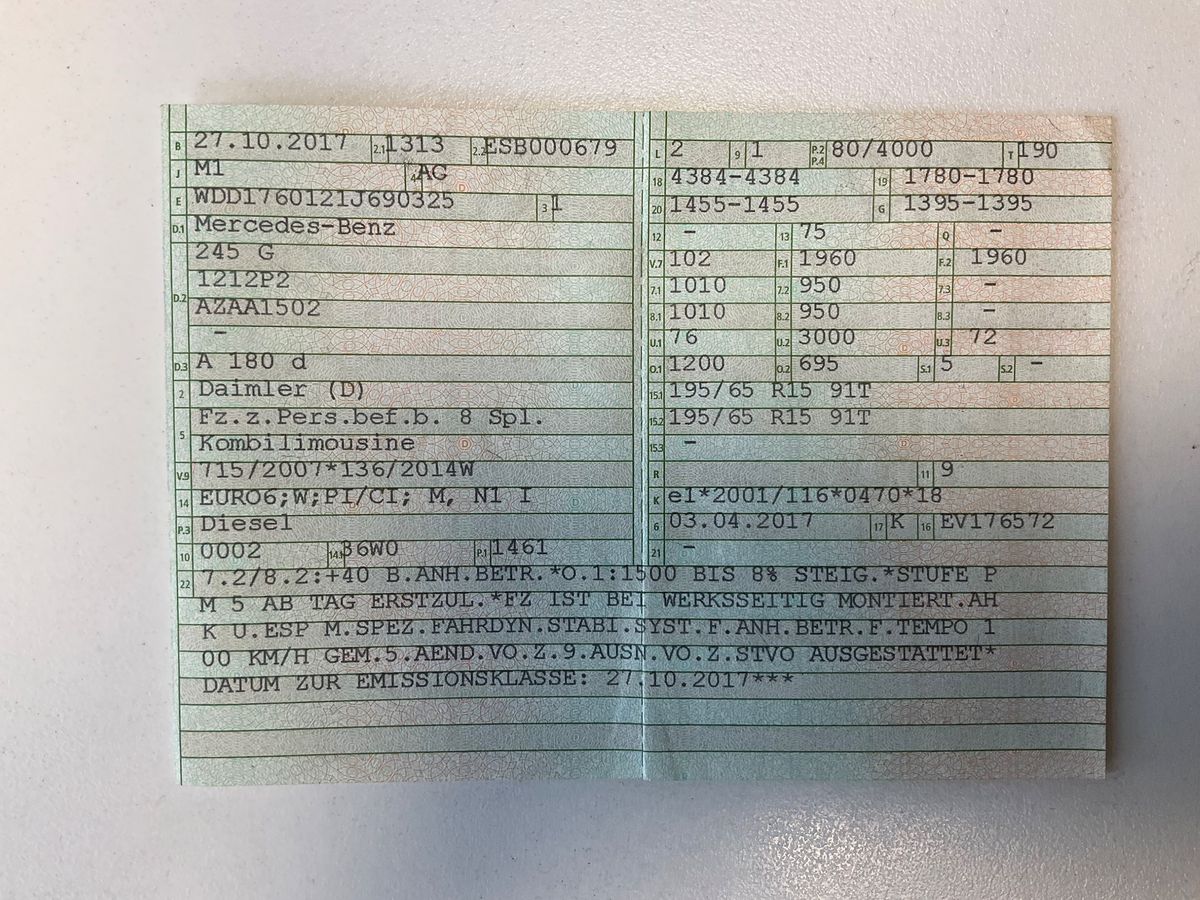 B 27.10.2017 2.1 1313 2.2 ESB000679
J M1 4 AG
E WDD1760121J690325 3 1
D.1 Mercedes-Benz
245 G
D.2 1212P2
AZAA1502
-
D.3 A 180 d
2 Daimler (D)
5 Fz.z.Pers.bef.b. 8 Spl.
Kombilimousine
V.9 715/2007*136/2014W
14 EURO6;W;PI/CI; M, N1 I
P.3 Diesel
10 0002 14.1 36W0 P.1 1461
L 2 9 1 P.2 P.4 80/4000 T 190
18 4384-4384 19 1780-1780
20 1455-1455 G 1395-1395
12 - 13 75 Q -
V.7 102 F.1 1960 F.2 1960
7.1 1010 7.2 950 7.3 -
8.1 1010 8.2 950 8.3 -
U.1 76 U.2 3000 U.3 72
O.1 1200 O.2 695 S.1 5 S.2 -
15.1 195/65 R15 91T
15.2 195/65 R15 91T
15.3 -
R 11 9
K e1*2001/116*0470*18
6 03.04.2017 17 K 16 EV176572
21 -
22 7.2/8.2:+40 B.ANH.BETR.*O.1:1500 BIS 8% STEIG.*STUFE P
M 5 AB TAG ERSTZUL.*FZ IST BEI WERKSSEITIG MONTIERT.AH
K U.ESP M.SPEZ.FAHRDYN.STABI.SYST.F.ANH.BETR.F.TEMPO 1
00 KM/H GEM.5.AEND.VO.Z.9.AUSN.VO.Z.STVO AUSGESTATTET*
DATUM ZUR EMISSIONSKLASSE: 27.10.2017***